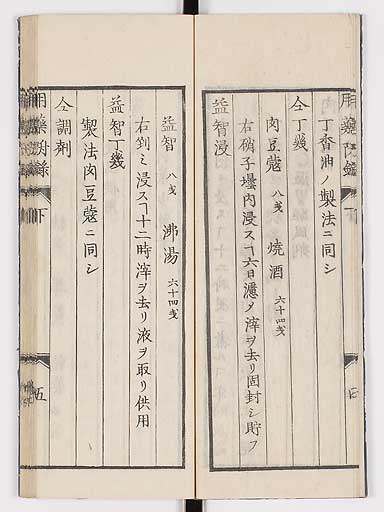 丁香油ノ製法ニ同シ
仝丁幾
肉豆蔲 八戔 焼酒 六十四戔
右硝子壜内浸スヿ六日濾メ滓ヲ去リ固封シ貯フ
益智浸
益智 八戔 沸湯 六十四戔
右剉ミ浸スヿ十二時滓ヲ去リ液ヲ取リ供用
益智丁幾
製法肉豆蔲ニ同シ
仝調剤
用藥附録 下 五